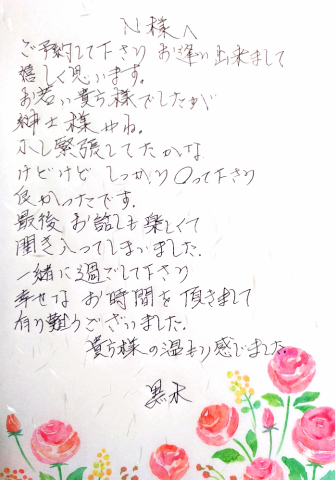 N様へ
ご予約して下さり お逢い出来まして
嬉しく思います。
お若い貴方様でしたが
紳士様ね。
少し緊張してたかな
けどけど しっかり〇って下さり
良かったです。
最後 お話しも楽しくて
聞き入ってしまいました。
一緒に過ごして下さり
幸せな お時間を頂きまして
有り難うございました。
貴方様の温もり感じました。
黒木